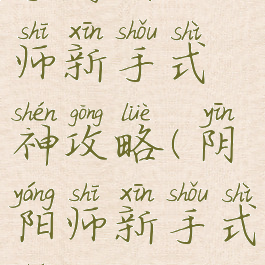 shī xīn shǒu shì
师新手式
shén gōng lüè yīn
神攻略(阴
yáng shī xīn shǒu shì
阳师新手式